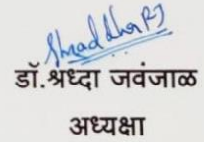 Shraddha RJ
डॉ.श्रध्दा जवंजाळ
अध्यक्षा